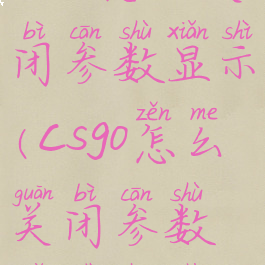 bì cān shù xiǎn shì
闭参数显示
zěn me
(CSGO怎么
guān bì cān shù
关闭参数